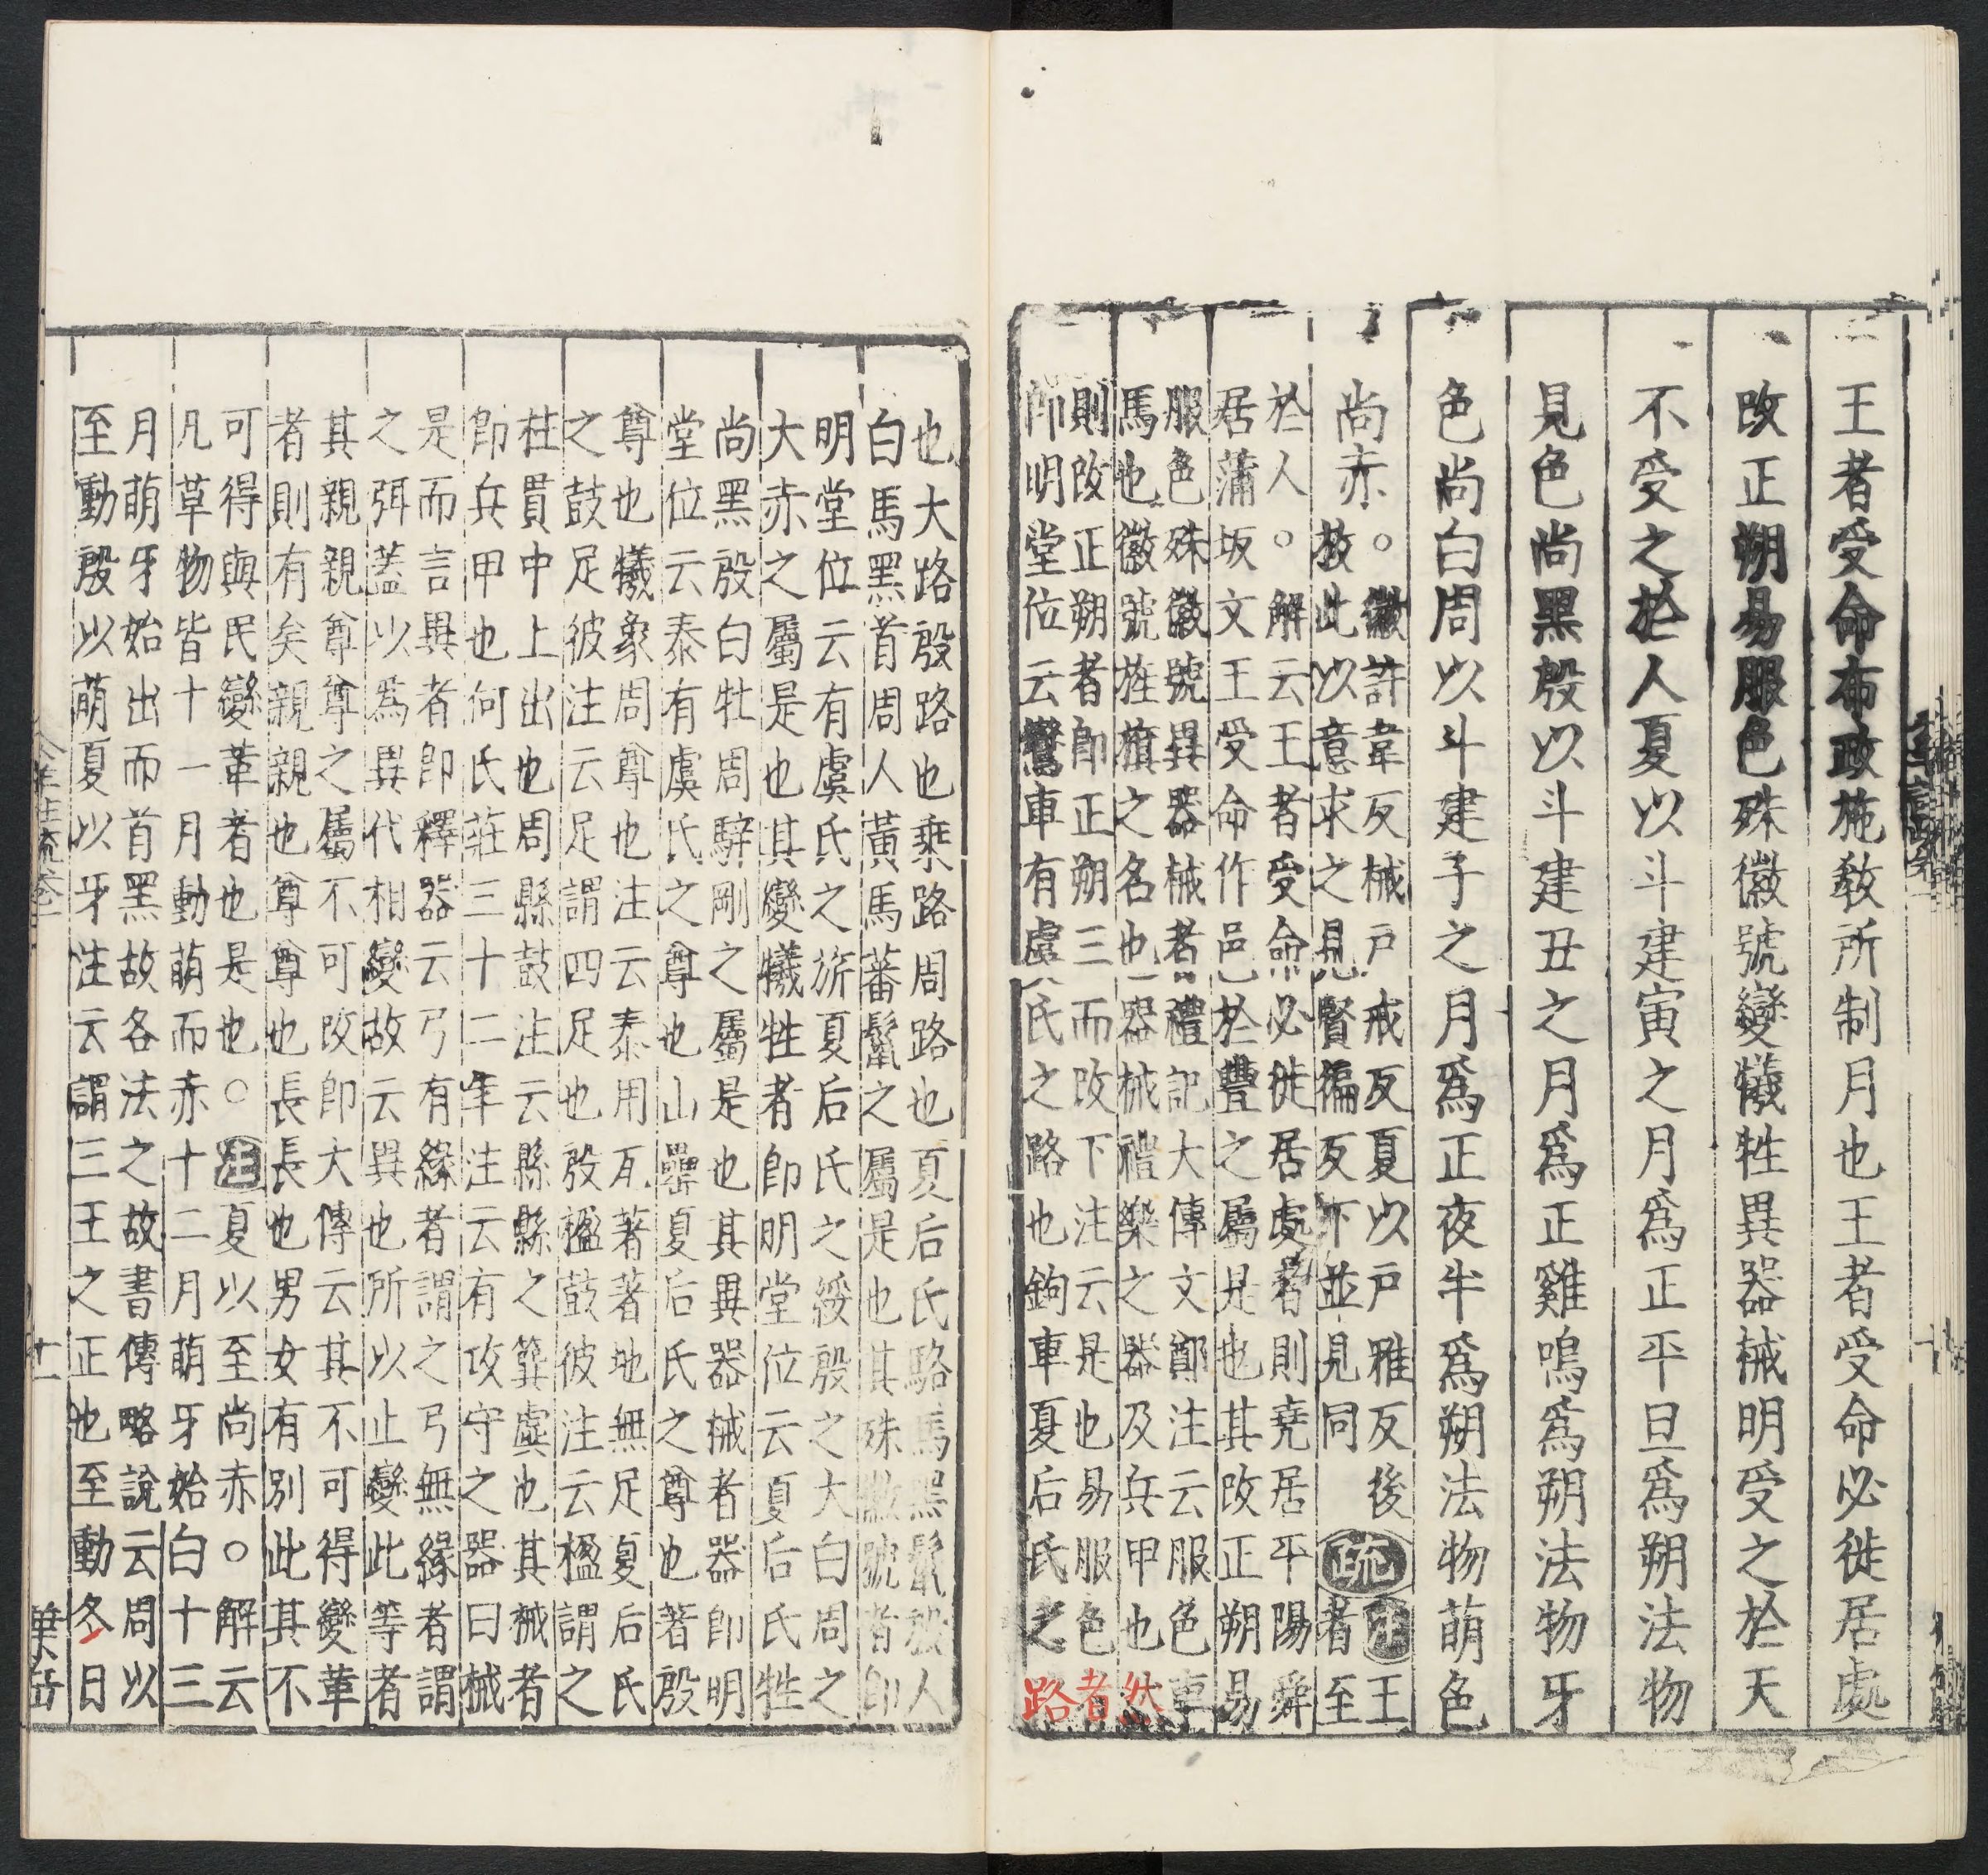 王者受命布政施教所制月也王者受命必徙居處
改正朔易服色殊徽號變犧牲異器械明受之於天
不受之於人夏以斗建寅之月爲正平旦爲朔法物
見色尚黑殷以斗建丑之月爲正雞鳴爲朔法物牙
色尚白周以斗建子之月爲正夜半爲朔法物萌色
尚赤。
徽許韋反械戶戒反夏以戶雅反後
放此以意求之見賢徧反下並見同
疏
注王
者至
於人。解云王者受命必徙居處者則堯居平陽舜
居蒲坂文王受命作邑於豐之屬是也其改正朔易
服色殊徽號異器械者禮記大傳文鄭注云服色車
馬也徽號旌旗之名也器械禮樂之器及兵甲也然
則改正朔者即正朔三而改下注云是也易服色者
即明堂位云鸞車有虞氏之路也鉤車夏后氏之路
也大路殷路也乘路周路也夏后氏駱馬黑鬣殷人
白馬黑首周人黃馬蕃鬣之屬是也其殊徽號者即
明堂位云有虞氏之旂夏后氏之綏殷之大白周之
大赤之屬是也其變犧牲者即明堂位云夏后氏牲
尚黑殷白牡周騂剛之屬是也其異器械者器即明
堂位云泰有虞氏之尊也山罍夏后氏之尊也著殷
尊也犧象周尊也注云泰用瓦著著地無足夏后氏
之鼓足彼注云足謂四足也殷楹鼓彼注云楹謂之
柱貫中上出也周縣鼓注云縣縣之簨虡也其械者
即兵甲也何氏莊三十二年注云有攻守之器曰械
是而言異者即釋器云弓有緣者謂之弓無緣者謂
之弭蓋以爲異代相變故云異也所以止變此等者
其親親尊尊之屬不可改即大傳云其不可得變革
者則有矣親親也尊尊也長長也男女有別此其不
可得與民變革者也是也。注夏以至尚赤。解云
凡草物皆十一月動萌而赤十二月萌牙始白十三
月萌牙始出而首黑故各法之故書傳略說云周以
至動殷以萌夏以牙注云謂三王之正也至動冬日
公羊注疏卷一
十一
葉岳